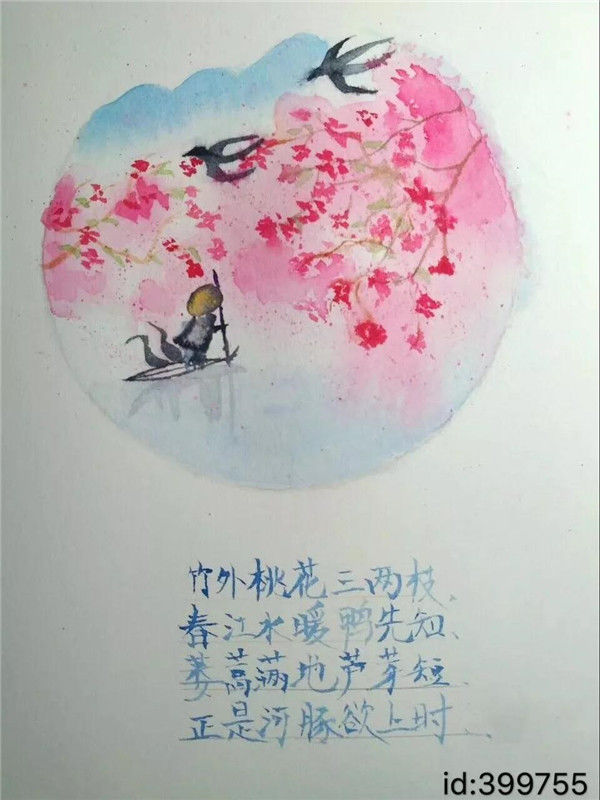 竹外桃花三两枝、
春江水暖鸭先知、
蒌蒿满地芦芽短
正是河豚欲上时、
id:399755